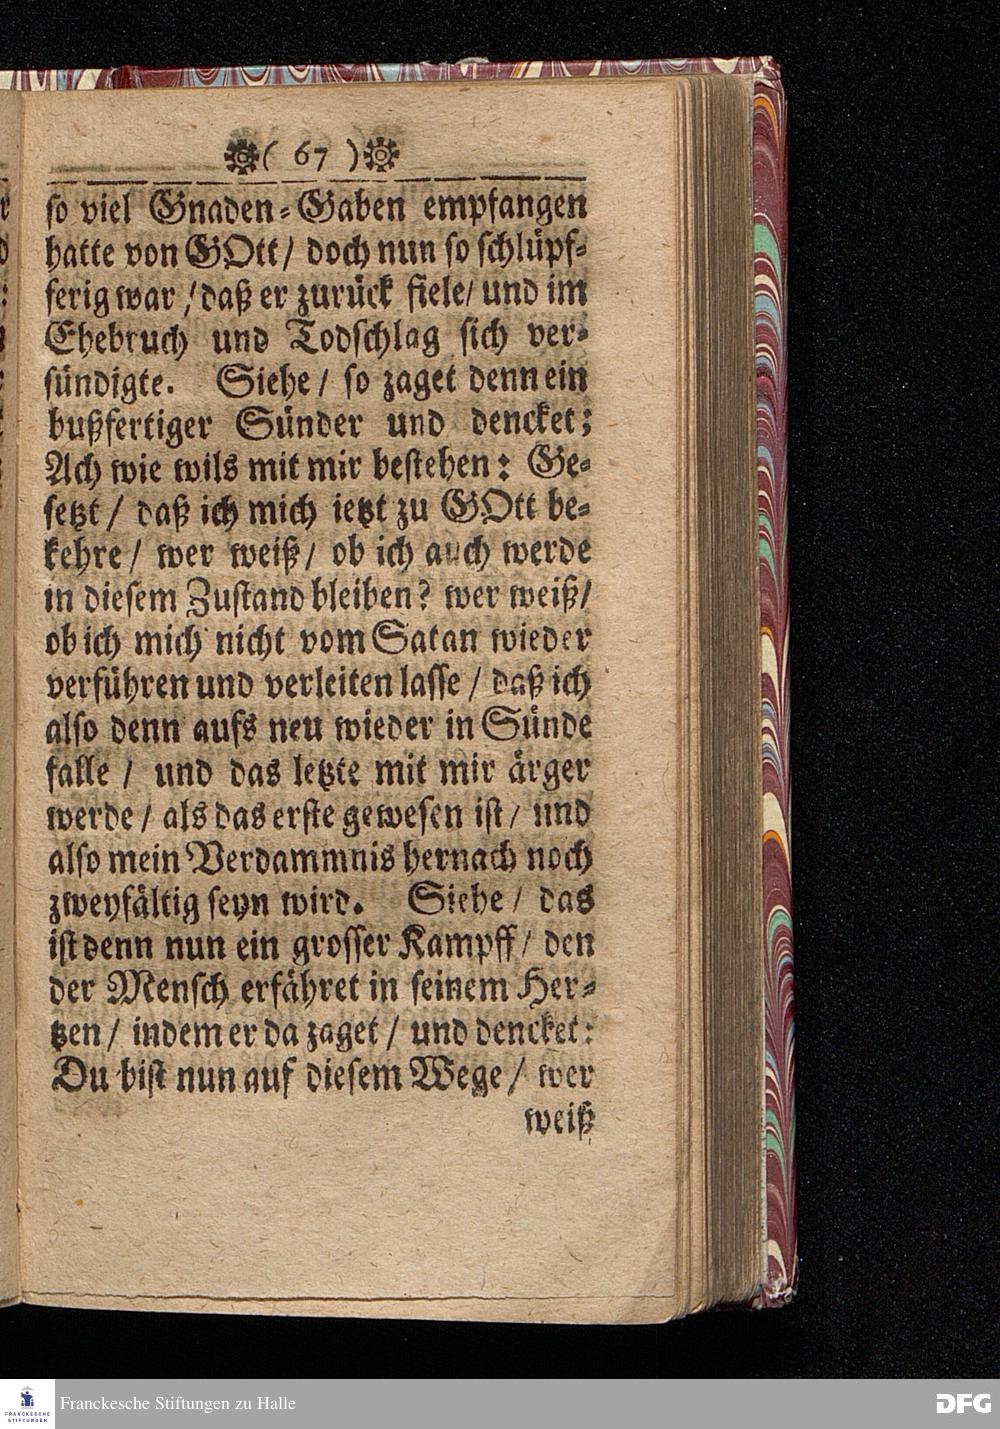 ( 67 )
so viel Gnaden-Gaben empfangen
hatte von GOtt/ doch nun so schlüpf-
ferig war / daß er zurück fiele/ und im
Ehebruch und Todschlag sich ver-
sündigte. Siehe / so zaget denn ein
bußfertiger Sünder und dencket;
Ach wie wils mit mir bestehen: Ge-
setzt / daß ich mich ietzt zu GOtt be-
kehre / wer weiß / ob ich auch werde
in diesem Zustand bleiben? wer weiß/
ob ich mich nicht vom Satan wieder
verführen und verleiten lasse / daß ich
also denn aufs neu wieder in Sünde
falle / und das letzte mit mir ärger
werde / als das erste gewesen ist / und
also mein Verdammnis hernach noch
zweyfältig seyn wird. Siehe / das
ist denn nun ein grosser Kampff / den
der Mensch erfähret in seinem Her-
tzen / indem er da zaget / und dencket:
Du bist nun auf diesem Wege / wer
weiß
FRANCKESCHE
STIFTUNGEN
Franckesche Stiftungen zu Halle
DFG